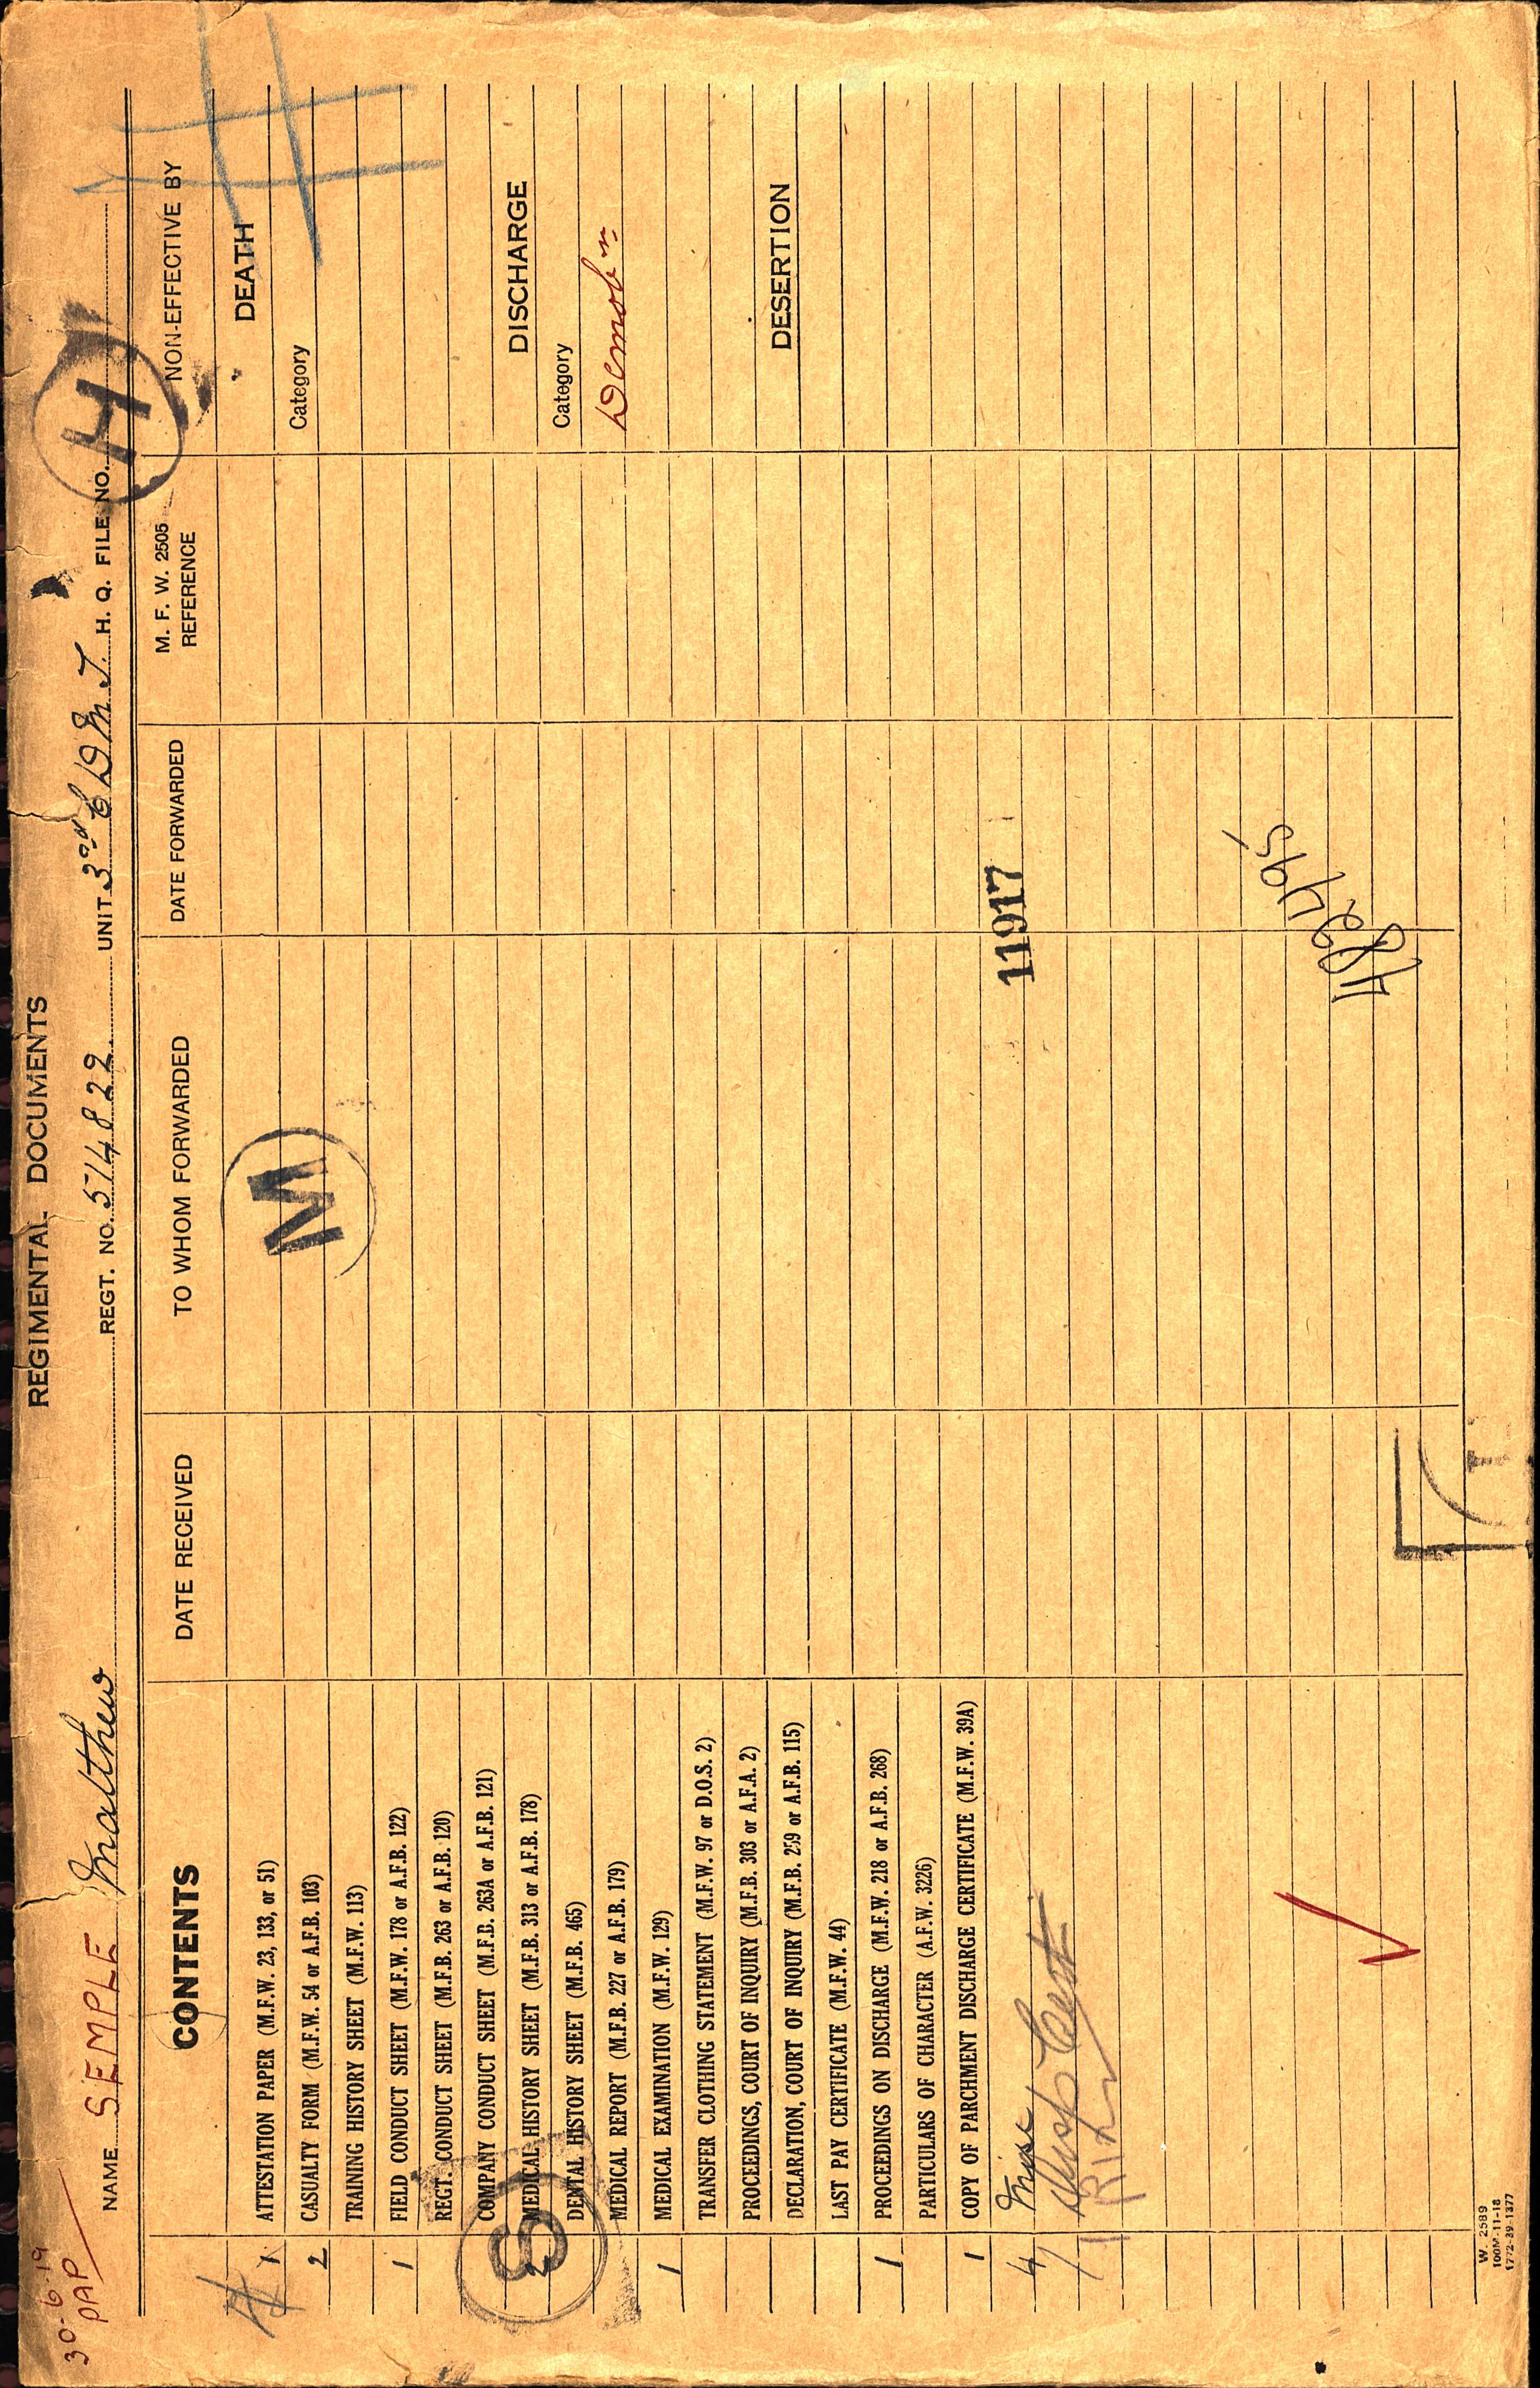 30-6-19
PAP
REGIMENTAL DOCUMENTS
NAME SEMPLE Matthew REGT. NO. 514822 UNIT 3rd C D M T H. Q. FILE NO.
H
CONTENTS
DATE RECEIVED
TO WHOM FORWARDED
DATE FORWARDED
M. F. W. 2505
REFERENCE
NON-EFFECTIVE BY
1 ATTESTATION PAPER (M.F.W. 23, 133, or 51)
2 CASUALTY FORM (M.F.W. 54 or A.F.B. 103)
TRAINING HISTORY SHEET (M.F.W. 113)
1 FIELD CONDUCT SHEET (M.F.W. 178 or A.F.B. 122)
REGT. CONDUCT SHEET (M.F.B. 263 or A.F.B. 120)
COMPANY CONDUCT SHEET (M.F.B. 263A or A.F.B. 121)
2 MEDICAL HISTORY SHEET (M.F.B. 313 or A.F.B. 178)
DENTAL HISTORY SHEET (M.F.B. 465)
MEDICAL REPORT (M.F.B. 227 or A.F.B. 179)
1 MEDICAL EXAMINATION (M.F.W. 129)
TRANSFER CLOTHING STATEMENT (M.F.W. 97 or D.O.S. 2)
PROCEEDINGS, COURT OF INQUIRY (M.F.B. 303 or A.F.A. 2)
DECLARATION, COURT OF INQUIRY (M.F.B. 259 or A.F.B. 115)
LAST PAY CERTIFICATE (M.F.W. 44)
1 PROCEEDINGS ON DISCHARGE (M.F.W. 218 or A.F.B. 268)
PARTICULARS OF CHARACTER (A.F.W. 3226)
1 COPY OF PARCHMENT DISCHARGE CERTIFICATE (M.F.W. 39A)
4 Misc
1 Cert
S
M
11917
482495
DEATH
Category
DISCHARGE
Category
Demobn
DESERTION
T
W. 2589
100M-11-18
1772-39-1377